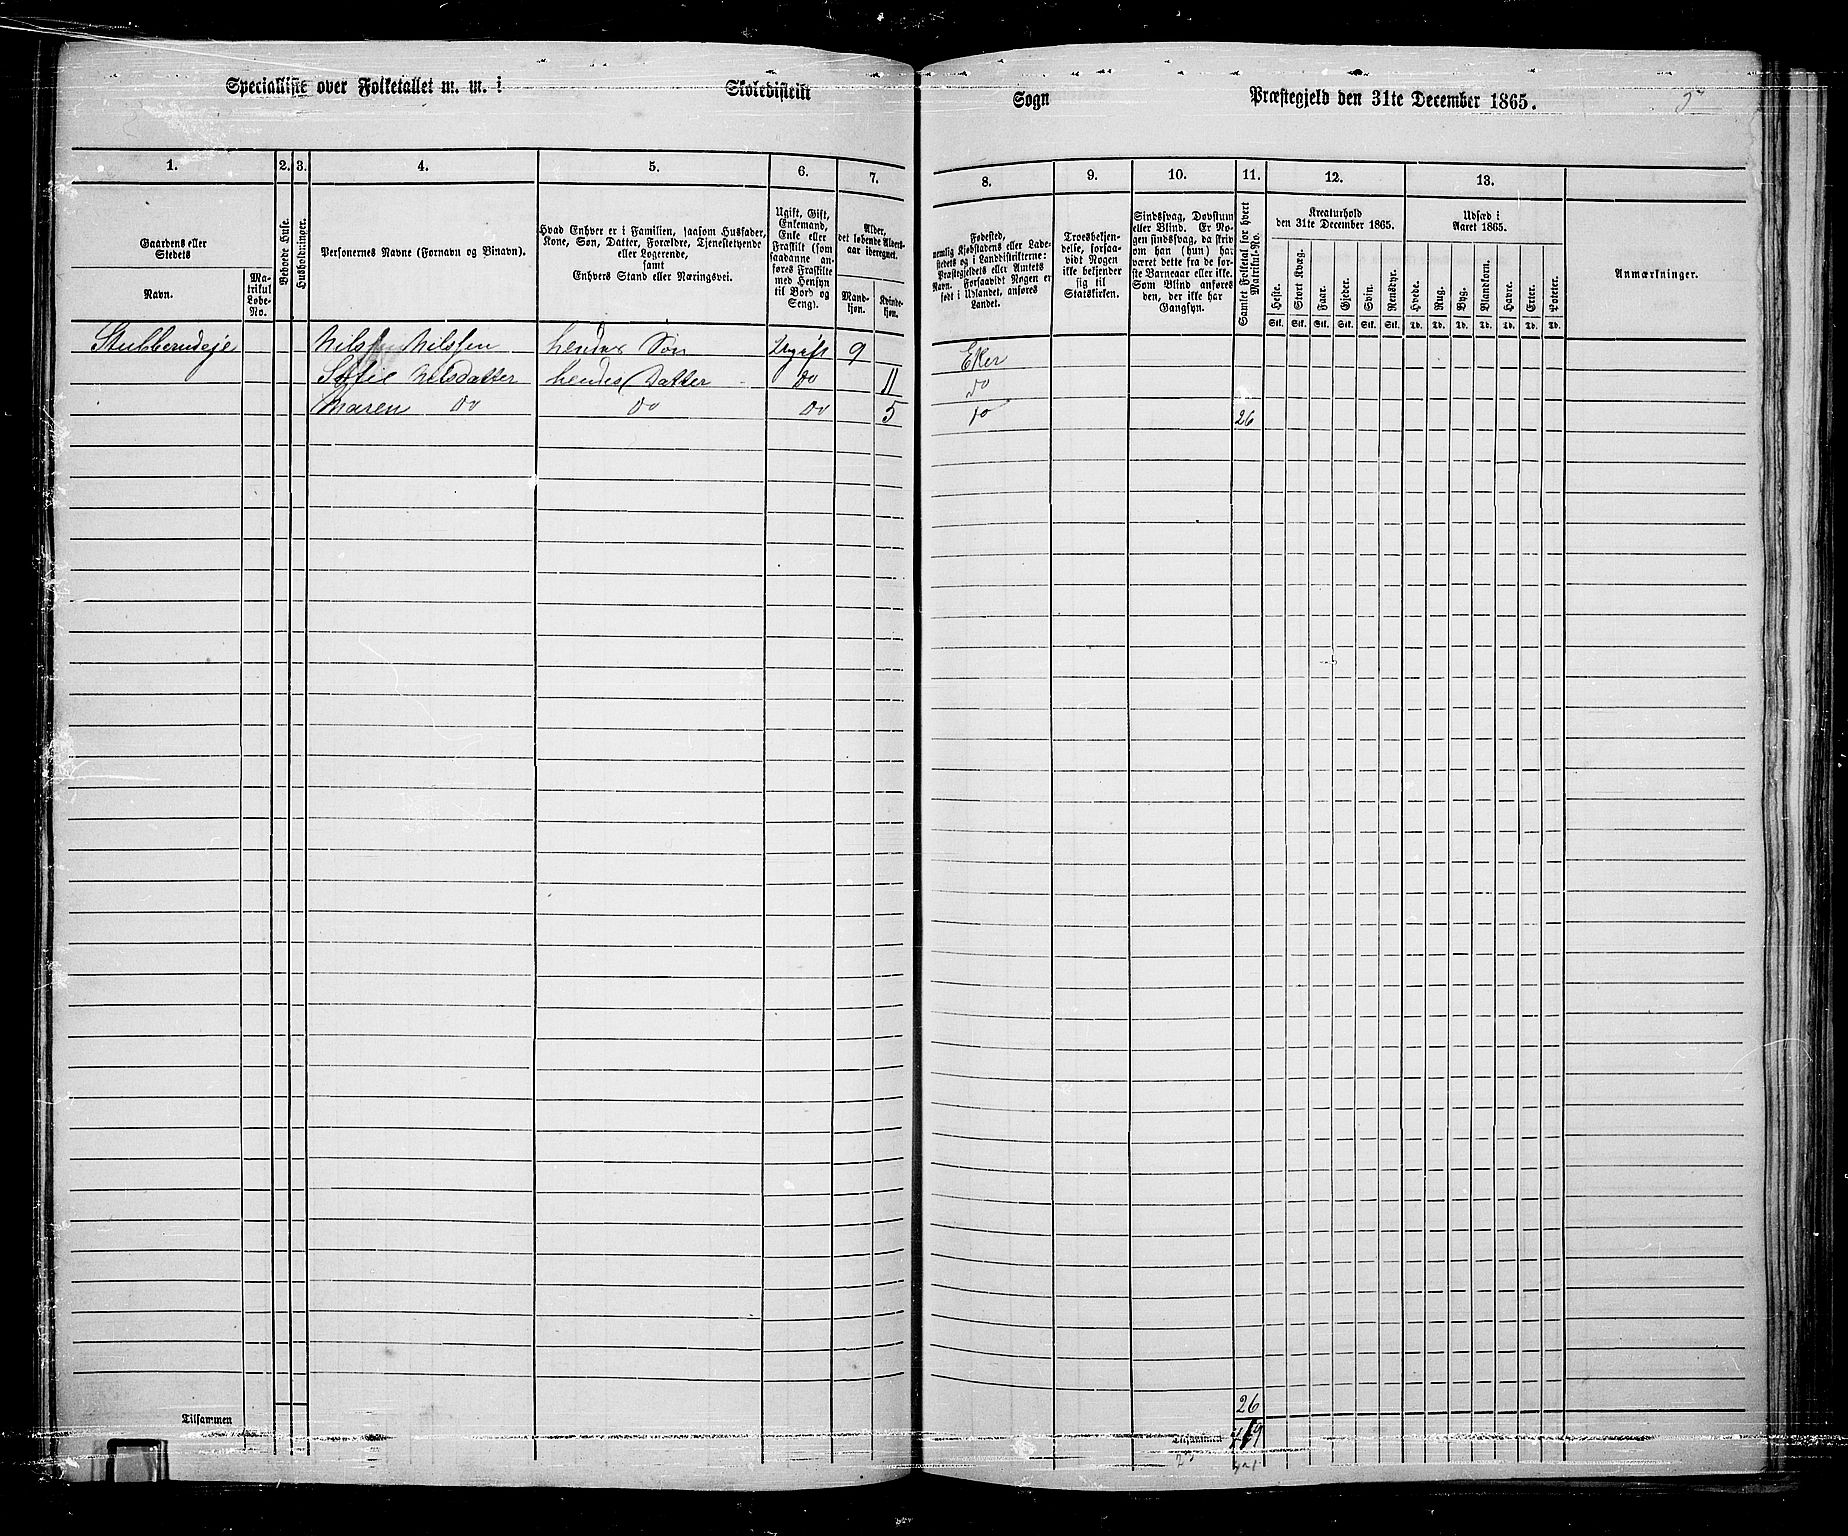 Specialliste over Folketallet m. m. i Skoledistrikt Sogn Præstegjeld den 31te December 1865.
1. 2. 3. 4. 5. 6. 7. 8. 9. 10. 11. 12. 13.
Gaardens eller Stedets
Navn.
Matrikul Løbe-No.
Beboede Huse.
Husholdninger.
Personernes Navne (Fornavn og Binavn).
Hvad Enhver er i Familien, saasom Husfader,
Kone, Søn, Datter, Forældre, Tjenestetyende
eller Logerende,
samt
Enhvers Stand eller Næringsvei.
Ugift, Gift,
Enkemand,
Enke eller
Fraskilt (som
saadanne an-
føres Fraskilte
med Hensyn
til Bord og
Seng).
Alder,
det løbende Alders-
aar iberegnet.
Mand-
kjøn.
Kvinde-
kjøn.
Fødested,
nemlig Kjøbstadens eller Lade-
stedets og i Landdistrikterne:
Præstegjeldets eller Amtets
Navn. Forsaavidt Nogen er
født i Udlandet, anføres
Landet.
Troesbekjen-
delse, forsaa-
vidt Nogen
ikke bekjender
sig til
Statskirken.
Sindssvag, Døvstum
eller Blind. Er No-
gen sindssvag, da skriv
om han (hun) har
været dette fra de før-
ste Barneaar eller ikke.
Som Blind anføres
den, der ikke har
Gangsyn.
Samlet Folketal for hvert
Matrikul-No.
Kreaturhold
den 31te December 1865.
Heste. Stort Kvæg. Faar. Gjeder. Svin. Rensdyr.
Stk. Stk. Stk. Stk. Stk. Stk.
Udsæd i
Aaret 1865.
Hvede. Rug. Byg. Blandkorn. Havre. Erter. Poteter.
Td. Td. Td. Td. Td. Td. Td.
Anmærkninger.
Stubberudeje Nils Nilssen hendes Søn Ugift 9 Eker
Sofie Nilsdatter hendes Datter do 11 do
Maren do do do 5 do 26
26
Tilsammen Tilsammen 419